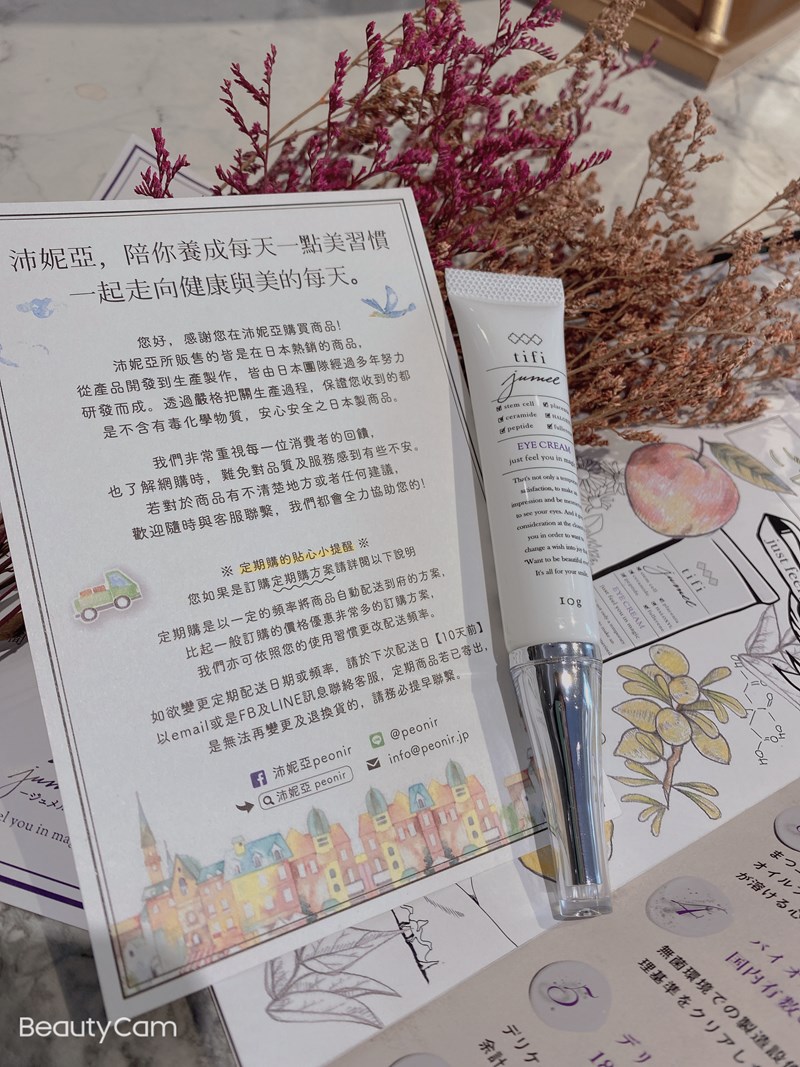 沛妮亞，陪你養成每天一點美習慣
一起走向健康與美的每天。
您好，感謝您在沛妮亞購買商品!
沛妮亞所販售的皆是在日本熱銷的商品，
從產品開發到生產製作，皆由日本團隊經過多年努力
研發而成。透過嚴格把關生產過程，保證您收到的都
是不含有毒化學物質，安心安全之日本製商品。
我們非常重視每一位消費者的回饋，
也了解網購時，難免對品質及服務感到有些不安。
若對於商品有不清楚地方或者任何建議，
歡迎隨時與客服聯繫，我們都會全力協助您的!
※ 定期購的貼心小提醒 ※
您如果是訂購定期購方案請詳閱以下說明
定期購是以一定的頻率將商品自動配送到府的方案，
比起一般訂購的價格優惠非常多的訂購方案，
我們亦可依照您的使用習慣更改配送頻率。
如欲變更定期配送日期或頻率，請於下次配送日【10天前】
以email或是FB及LINE訊息聯絡客服，定期商品若已寄出，
是無法再變更及退換貨的，請務必提早聯繫。
沛妮亞peonir
@peonir
沛妮亞 peonir
info@peonir.jp
tifi
jumee
stem cell
ceramide
peptide
EYE CREAM
just feel you in
That's not only a
satisfaction, to make
impression and be
to see your eyes. And
consideration at the
you in order to want
change a wish into
"Want to be beautiful
It's all for your
10g
tifi
jumee
EYE CREAM
just feel
OH
OH
el you in
オイル
が溶ける心
4
バイオ
国内有数
無菌環境での製造設
理基準をクリアし
5
デリ
18
デリケ
余計
BeautyCam